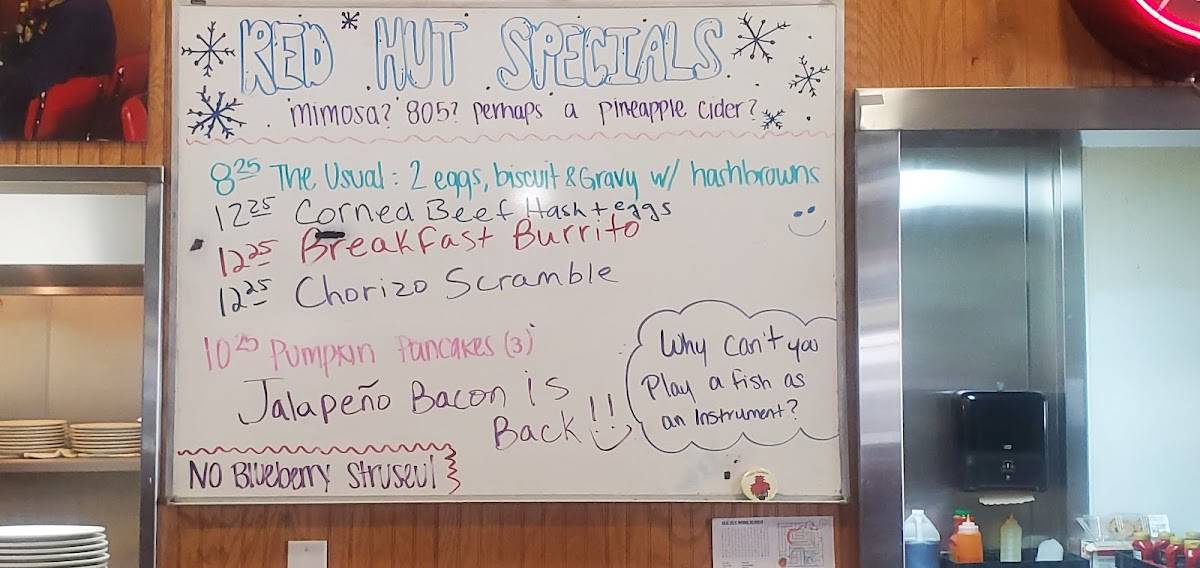 RED HUT SPECIALS
mimosa? 805? perhaps a pineapple cider?
8 25 The Usual: 2 eggs, biscuit & Gravy w/ hashbrowns
12 25 Corned Beef Hash + eggs
12 25 Breakfast Burrito
12 25 Chorizo Scramble
10 25 Pumpkin Pancakes (3)
Jalapeño Bacon is
Back!!
Why can't you
Play a fish as
an Instrument?
NO Blueberry Struseul